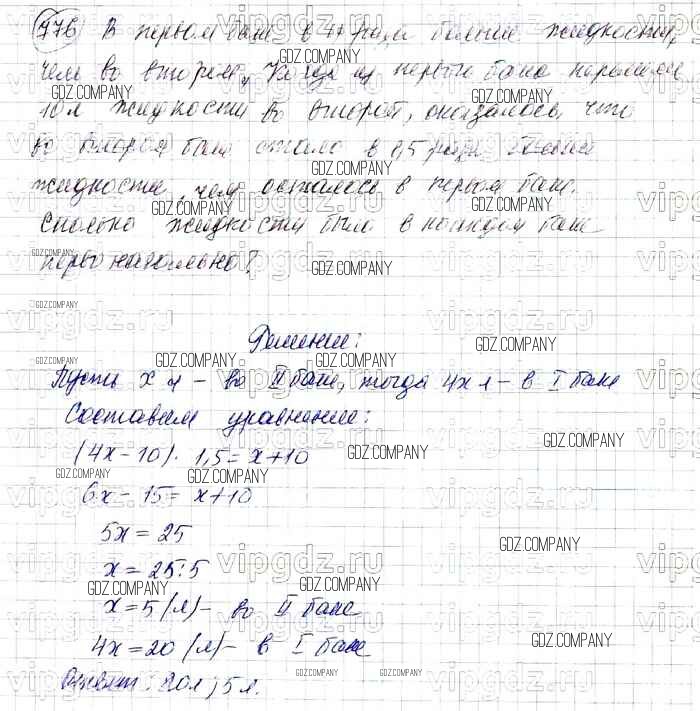 776 В первом баке в 4 раза больше жидкости,
чем во втором. Когда из первого бака перелили
10 л жидкости во второй, оказалось, что
во втором баке стало в 1,5 раза больше
жидкости, чем осталось в первом баке.
Сколько жидкости было в каждом баке
первоначально?
Решение:
Пусть x л - во II баке, тогда 4x л - в I баке
Составим уравнение:
(4x-10)·1,5=x+10
6x-15=x+10
5x=25
x=25:5
x=5 (л) - во II баке
4x=20 (л) - в I баке
Ответ: 20л; 5л.
GDZ.COMPANY
vipgdz.ru